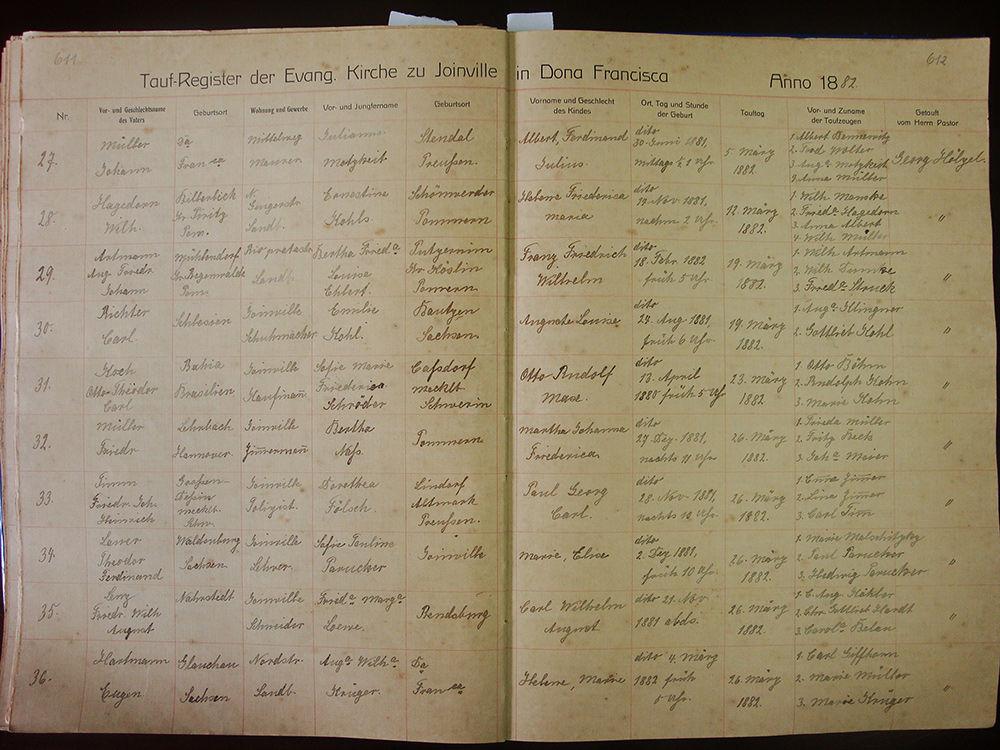 611
612
Tauf-Register der Evang. Kirche zu Joinville in Dona Francisca Anno 1882.
Nr.
Vor- und Geschlechtsname des Vaters
Geburtsort
Wohnung und Gewerbe
Vor- und Jungfername
Geburtsort
Vorname und Geschlecht des Kindes
Ort, Tag und Stunde der Geburt
Tauftag
Vor- und Zuname der Taufzeugen
Getauft vom Herrn Pastor
27. Müller Da Mittelweg Julianna Stendal Albert, Ferdinand dito 1. Albert Bennewitz
30 Juni 1881, 5 März 2. Ferd Wolter
Johann Franca Maurer Preußen. Julius mittags ½ 1 Uhr 1882. 3. Aug. Georg Hölzel.
Anna Müller
28. Hagedorn N. Ernestine Schönwerder Helene Friederica dito 1. Wilh Manske
Gr. Piritz 19 Nov 1881, 12. März 2. Friedr. Hagedorn "
Wilh. Pom. Landt. Kohls Pommern Maria nachm 2 Uhr 1882. 3. Anna Albert
4. Wilh Müller
29. Artmann Bertha Frieda Franz Friedrich dito 1. Wilh Artmann
Aug Friedr Gr. Regenwalde Landt. Louise Kr. Köslin 18. Febr. 1882 19. März 2. Wilh "
Johann Pom. Ehlert. Pommern Wilhelm früh 5 Uhr 1882. 3. Struck
30. Richter Schlesien Joinville Emilie Bautzen Auguste Louise dito 1. Auga Illingner
24. Aug 1881, 19. März 2. Gottlieb Kohl "
Carl. Schuhmacher Kohl. Sachsen. früh 6 Uhr 1882.
31. Koch Bahia Joinville Sofie Marie Otto Rudolf dito 1. Otto Böhm
Otto Theodor Brasilien Kaufmañ Friederica meckl. 13. April 23. März 2. Rudolph Hohn "
Carl Schröder Schwerin Max. 1880 früh 5 Uhr 1882 3. Marie Hohn
32. Müller Lehrbach Joinville Bertha Pommern Martha Johanna dito 1. Frieda Müller
27 Dez. 1881, 26. März 2. Fritz "
Friedr Hannover. Zimmermañ Nass. Friederica nachts 11 Uhr 1882. 3. Joha Maier
33. Timm Joinville Dorothea Lindorf Paul Georg dito Zimmer
Friedr. Joh. Polizist. Fölsch. Altmark 28. Nov 1881, 26. März 2. Lina Zimmer "
Heinrich meckl. Preußen. Carl. nachts 1882. 3. Carl Tim
34. Waldenburg Joinville Sofie Pauline Joinville Marie, Elise dito 1. Marie
Theodor Sachsen Lehrer. Parucker 2. Dez 1881, 26. März 2. Paul Parucker "
Ferdinand früh 10 Uhr. 1882. 3. Hedwig Parucker
35. Lenz Nahrstedt Joinville Frieda Marga Rendsburg Carl Wilhelm dito 21. Nov 26. März
Friedr Wilh Schneider Loewe. 1881 abds. 2. Chr. Gottlieb Hardt "
August August 1882. 3. Carola Belau
36. Hartmann Glauchau Nordstr. Auga Wilha Da Helene, Marie dito 4. März 1. Carl
1882 früh 26. März 2. Marie Müller "
Eugen Sachsen Landb. Krüger. Franca 5 Uhr. 1882. 3. Marie Krüger